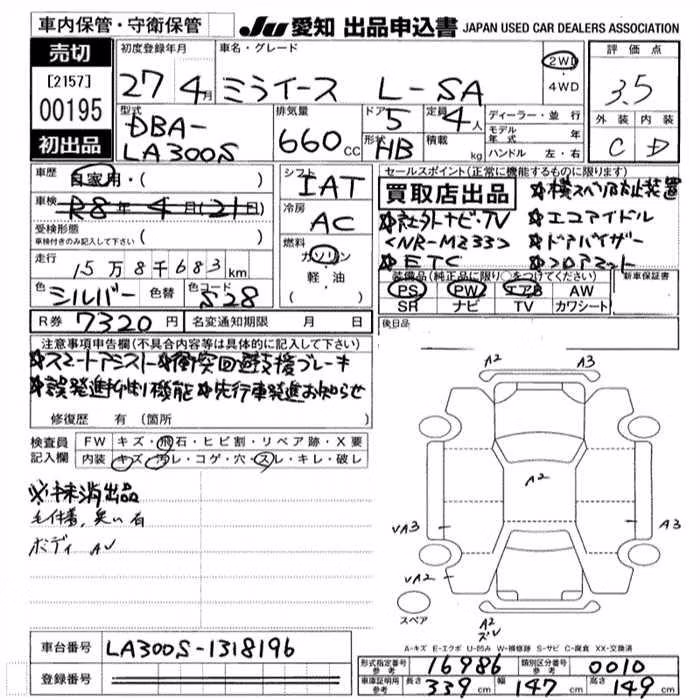 車内保管・守衛保管
JU 愛知 出品申込書 JAPAN USED CAR DEALERS ASSOCIATION
売切
[2157]
00195
初出品
初度登録年月
27 4月
車名・グレード
ミライース L-SA
2WD
・
4WD
評価点
3.5
外装 内装
C D
型式
DBA-
LA300S
排気量
660 CC
ドア
5
形状
HB
定員
4人
積載
kg
ディーラー・並行
モデル年式 年
ハンドル 左・右
車歴
自家用・( )
車検
R8年4月(21日)
受検形態
車検付きのみ記入して下さい ( )
走行
15万8千683km
色
シルバー
色替
色コード
S28
シフト
IAT
冷房
AC
燃料
ガソリン
軽・油
セールスポイント(正常に機能するものに限ります)
買取店出品
※横スベリ防止装置
※社外ナビ・TV
※エコアイドル
<NR-MZ33>
※ドアバイザー
※ETC
※フロアマット
装備品(純正品に限り○をつけてください)
新車保証書
PS PW エアB AW
SR ナビ TV カワシート
R券 7320円
名変通知期限 月 日
後日品
注意事項申告欄(不具合内容等は具体的に記入して下さい)
※スマートアシスト※衝突回避支援ブレーキ
※誤発進抑制機能※先行車発進お知らせ
修復歴 有(箇所
検査員
記入欄
FW キズ・飛石・ヒビ割・リペア跡・X要
内装 キズ・汚レ・コゲ・穴・スレ・キレ・破レ
※抹消出品
毛付着,臭い有
ボディ AU
A2
A3
A2
UA3
A3
UA2
A2
スペア
A-キズ E-エクボ U-凹み W-補修跡 S-サビ C-腐食 XX-交換済
車台番号 LA300S-1318196
登録番号
形式指定番号
参考
16986
類別区分番号
参考
0010
車庫証明用
参考
長さ 339cm 幅 147cm 高さ 149cm